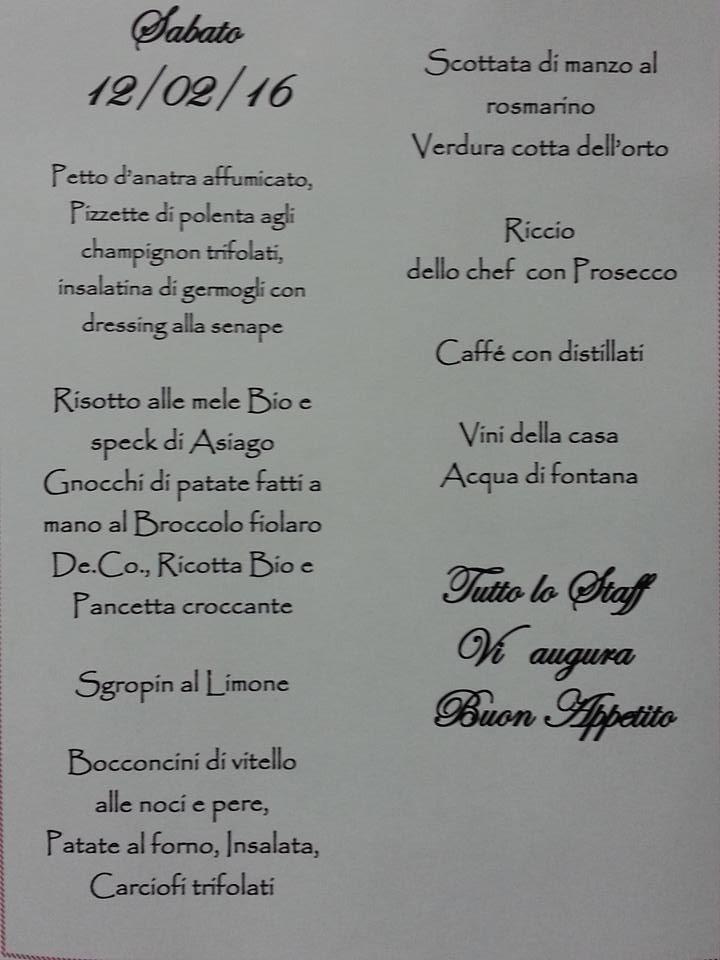 Sabato
12/02/16
Petto d'anatra affumicato,
Pizzette di polenta agli
champignon trifolati,
insalatina di germogli con
dressing alla senape
Risotto alle mele Bio e
speck di Asiago
Gnocchi di patate fatti a
mano al Broccolo fiolaro
De.Co., Ricotta Bio e
Pancetta croccante
Sgropin al Limone
Bocconcini di vitello
alle noci e pere,
Patate al forno, Insalata,
Carciofi trifolati
Scottata di manzo al
rosmarino
Verdura cotta dell'orto
Riccio
dello chef con Prosecco
Caffé con distillati
Vini della casa
Acqua di fontana
Tutto lo Staff
Vi augura
Buon Appetito